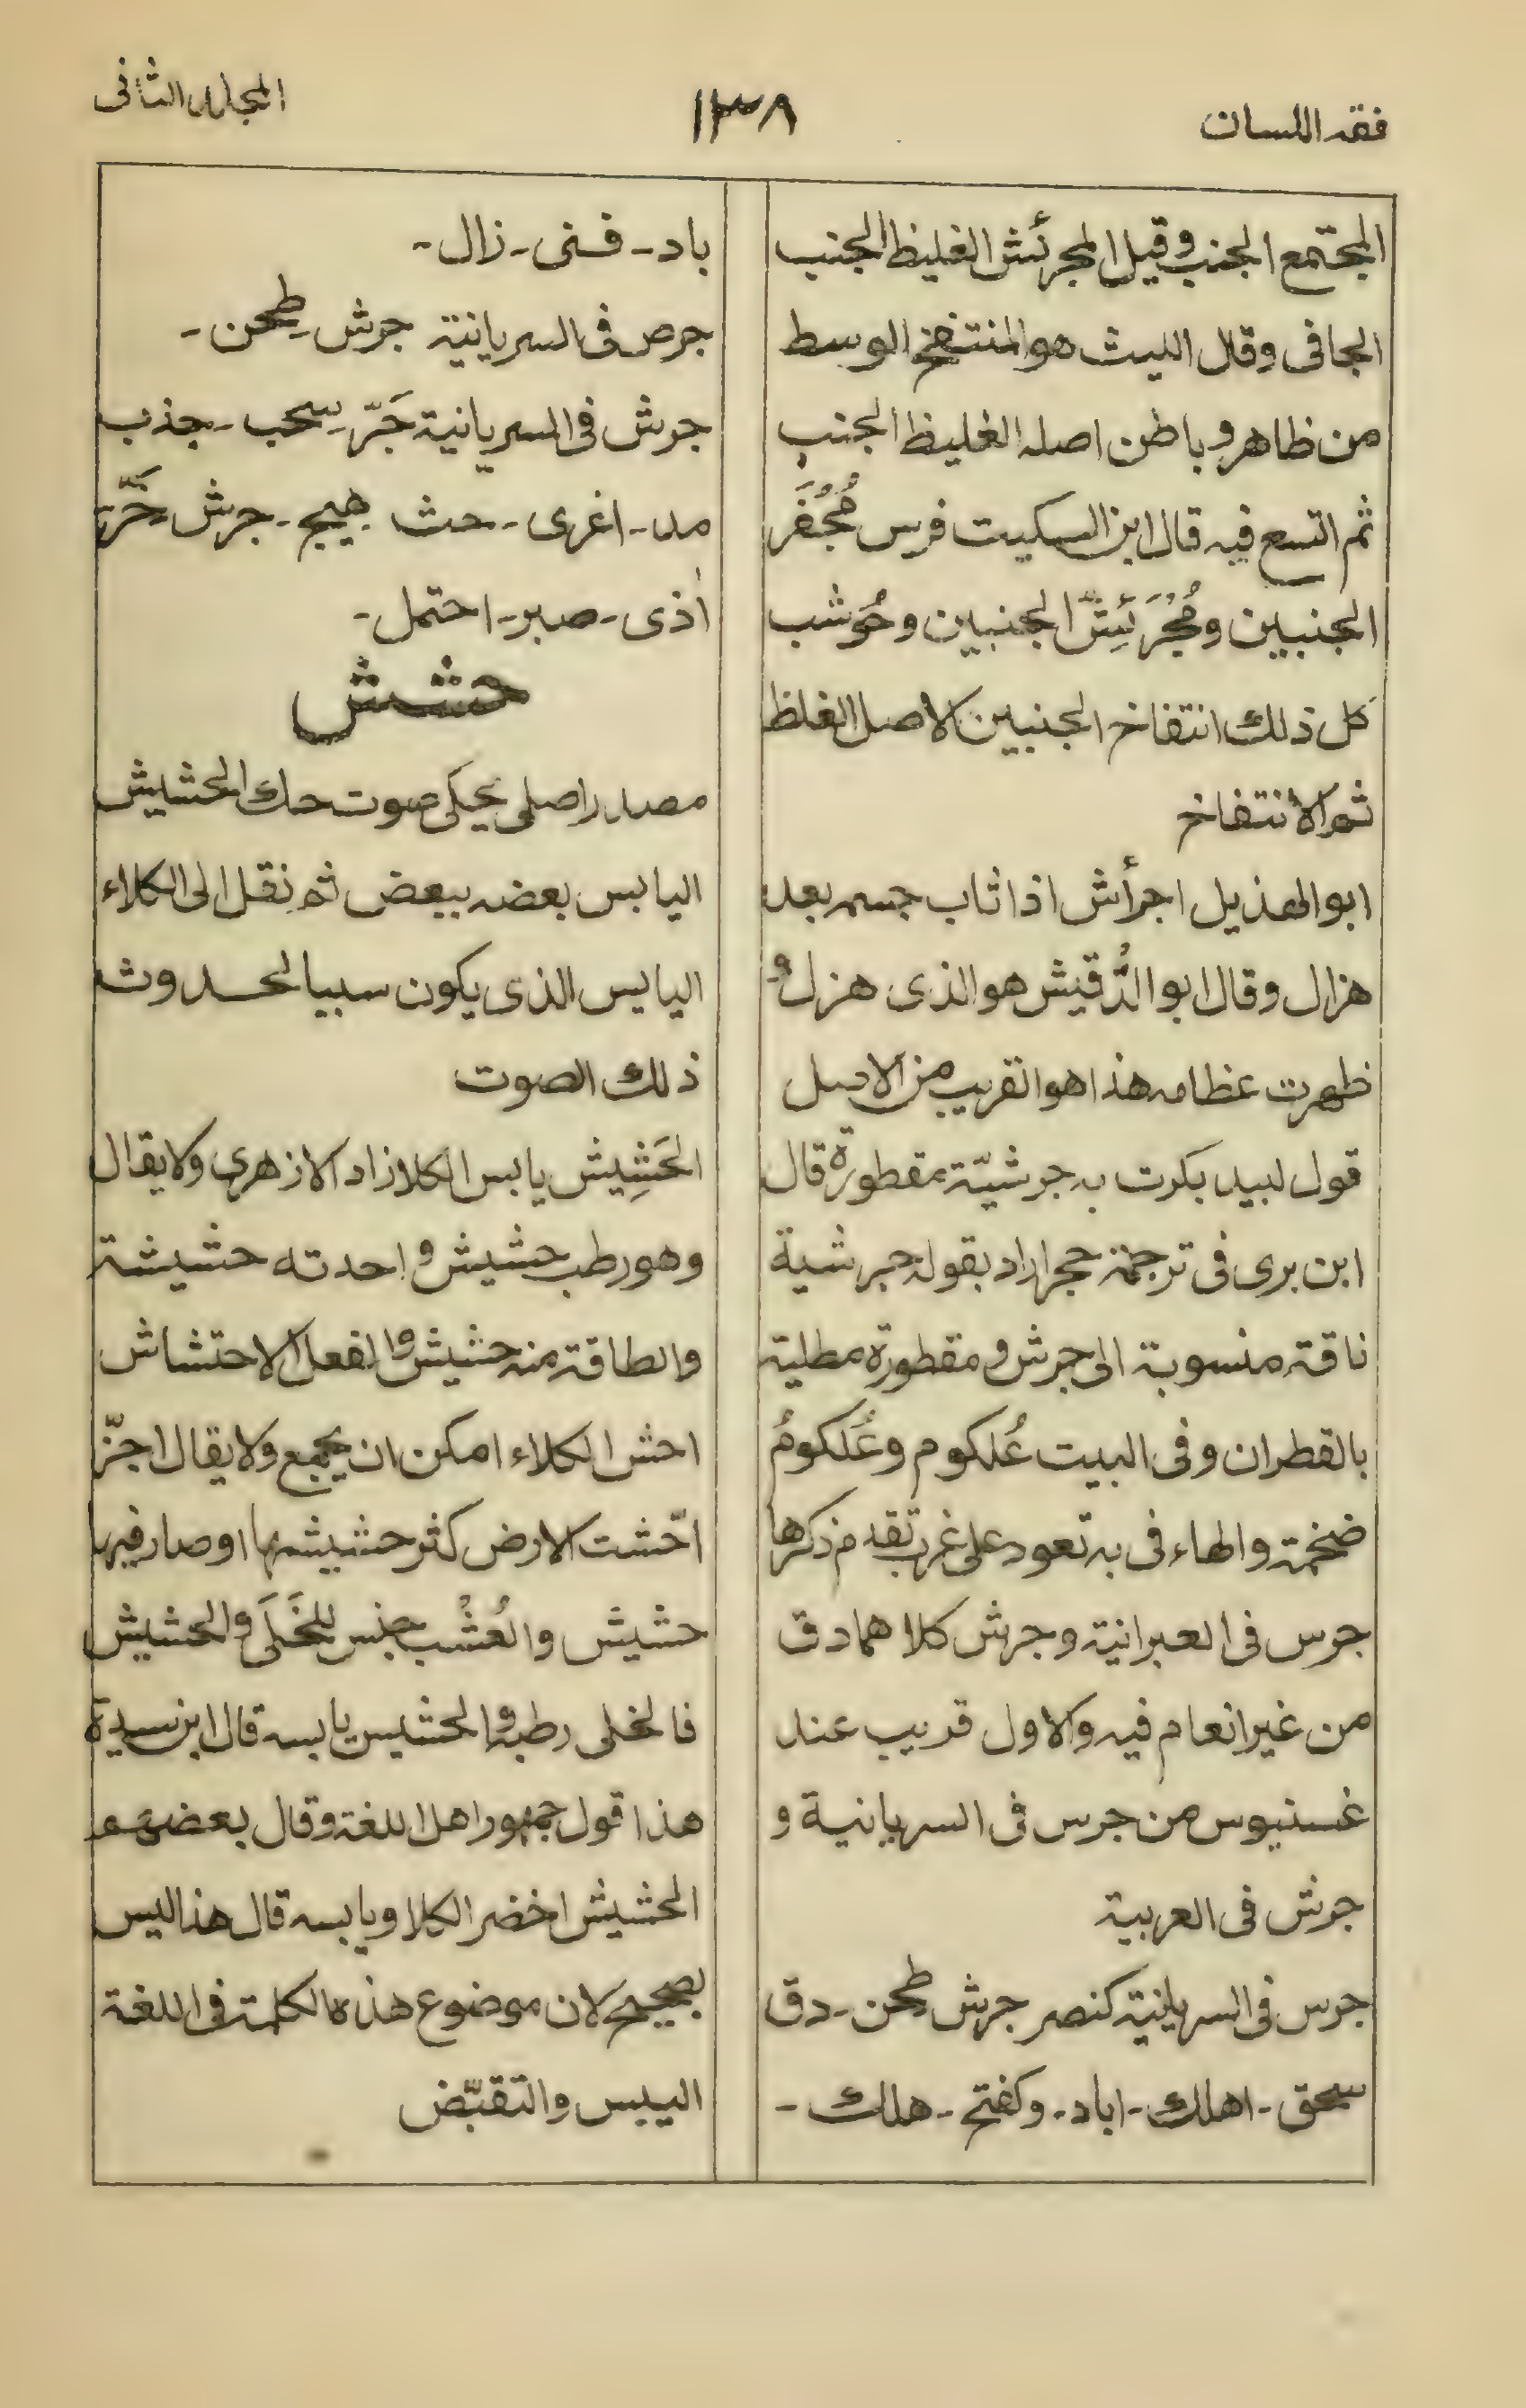 فقه اللسان
١١٣٨
المجلد الثانى
المجتمع الجنب وقيل المجرئش الغليظ الجنب
الجافى وقال الليث هو المنتفخ الوسط
من ظاهر وباطن اصله الغليظ الجنب
ثم اتسع فيه قال ابن السكيت فرس مُجُفَر
الجنبين ومُجْرَئِشّ الجنبين وحُوشب
كل ذلك انتفاخ الجنبين الاصل الغلظ
ثم الانتفاخ
ابو الهذيل اجرأش اذا ثاب جسمه بعد
هزال وقال ابو الدُّقيش هو الذى هزل و
ظهرت عظامه هذا هو القريب من الاصل
قول لبيد بكرت به جرشيّة مقطورة قال
ابن برى فى ترجمة حجر اراد بقوله جرشية
ناقة منسوبة الى جرش و مقطورة مطلية
بالقطران وفى البيت عُلكوم وعُلكومُ
ضخمة والهاء فى به تعود على غرب تقدم ذكرها
جرس فى العبرانية وجرش كلاهما دق
من غير انعام فيه والاول قريب عند
غسنيوس من جرس فى السريانية و
جرش فى العربية
جرس فى السريانية كنصر جرش طحن - دق
سحق - اهلك - اباد - وكفتح - هلك -
باد - فنى - زال -
جرص فى السريانية جرش - طحن -
جرش فى السريانية جَرّ - سحب - جذب
مد - اغرى - حث هيج - جرش خَرَّ
أذى - صبر - احتمل -
حشش
مصدر اصلى يحكى صوت حك الحشيش
اليابس بعضه ببعض ثم نقل الى الكلاء
اليابس الذى يكون سببا لحدوث
ذلك الصوت
الحَشِيش يابس الكلا زاد الازهرى ولا يقال
وهو رطب حشيش واحدته حشيشة
والطاقة منه حشيش والفعل الاحتشاش
احش الكلاء امكن ان يجمع ولا يقال اجزّ
احّشت الارض كثر حشيشها او صار فيها
حشيش والعُشْب جنس للخَلَى والحشيش
فالخلى رطبه والحشيش يابسه قال ابن سيدة
هذا قول جمهور اهل اللغة وقال بعضهم
الحشيش اخضر الكلا ويابسه قال هذا ليس
بصحيح لان موضوع هذه الكلمة فى اللغة
اليبس والتقبّض